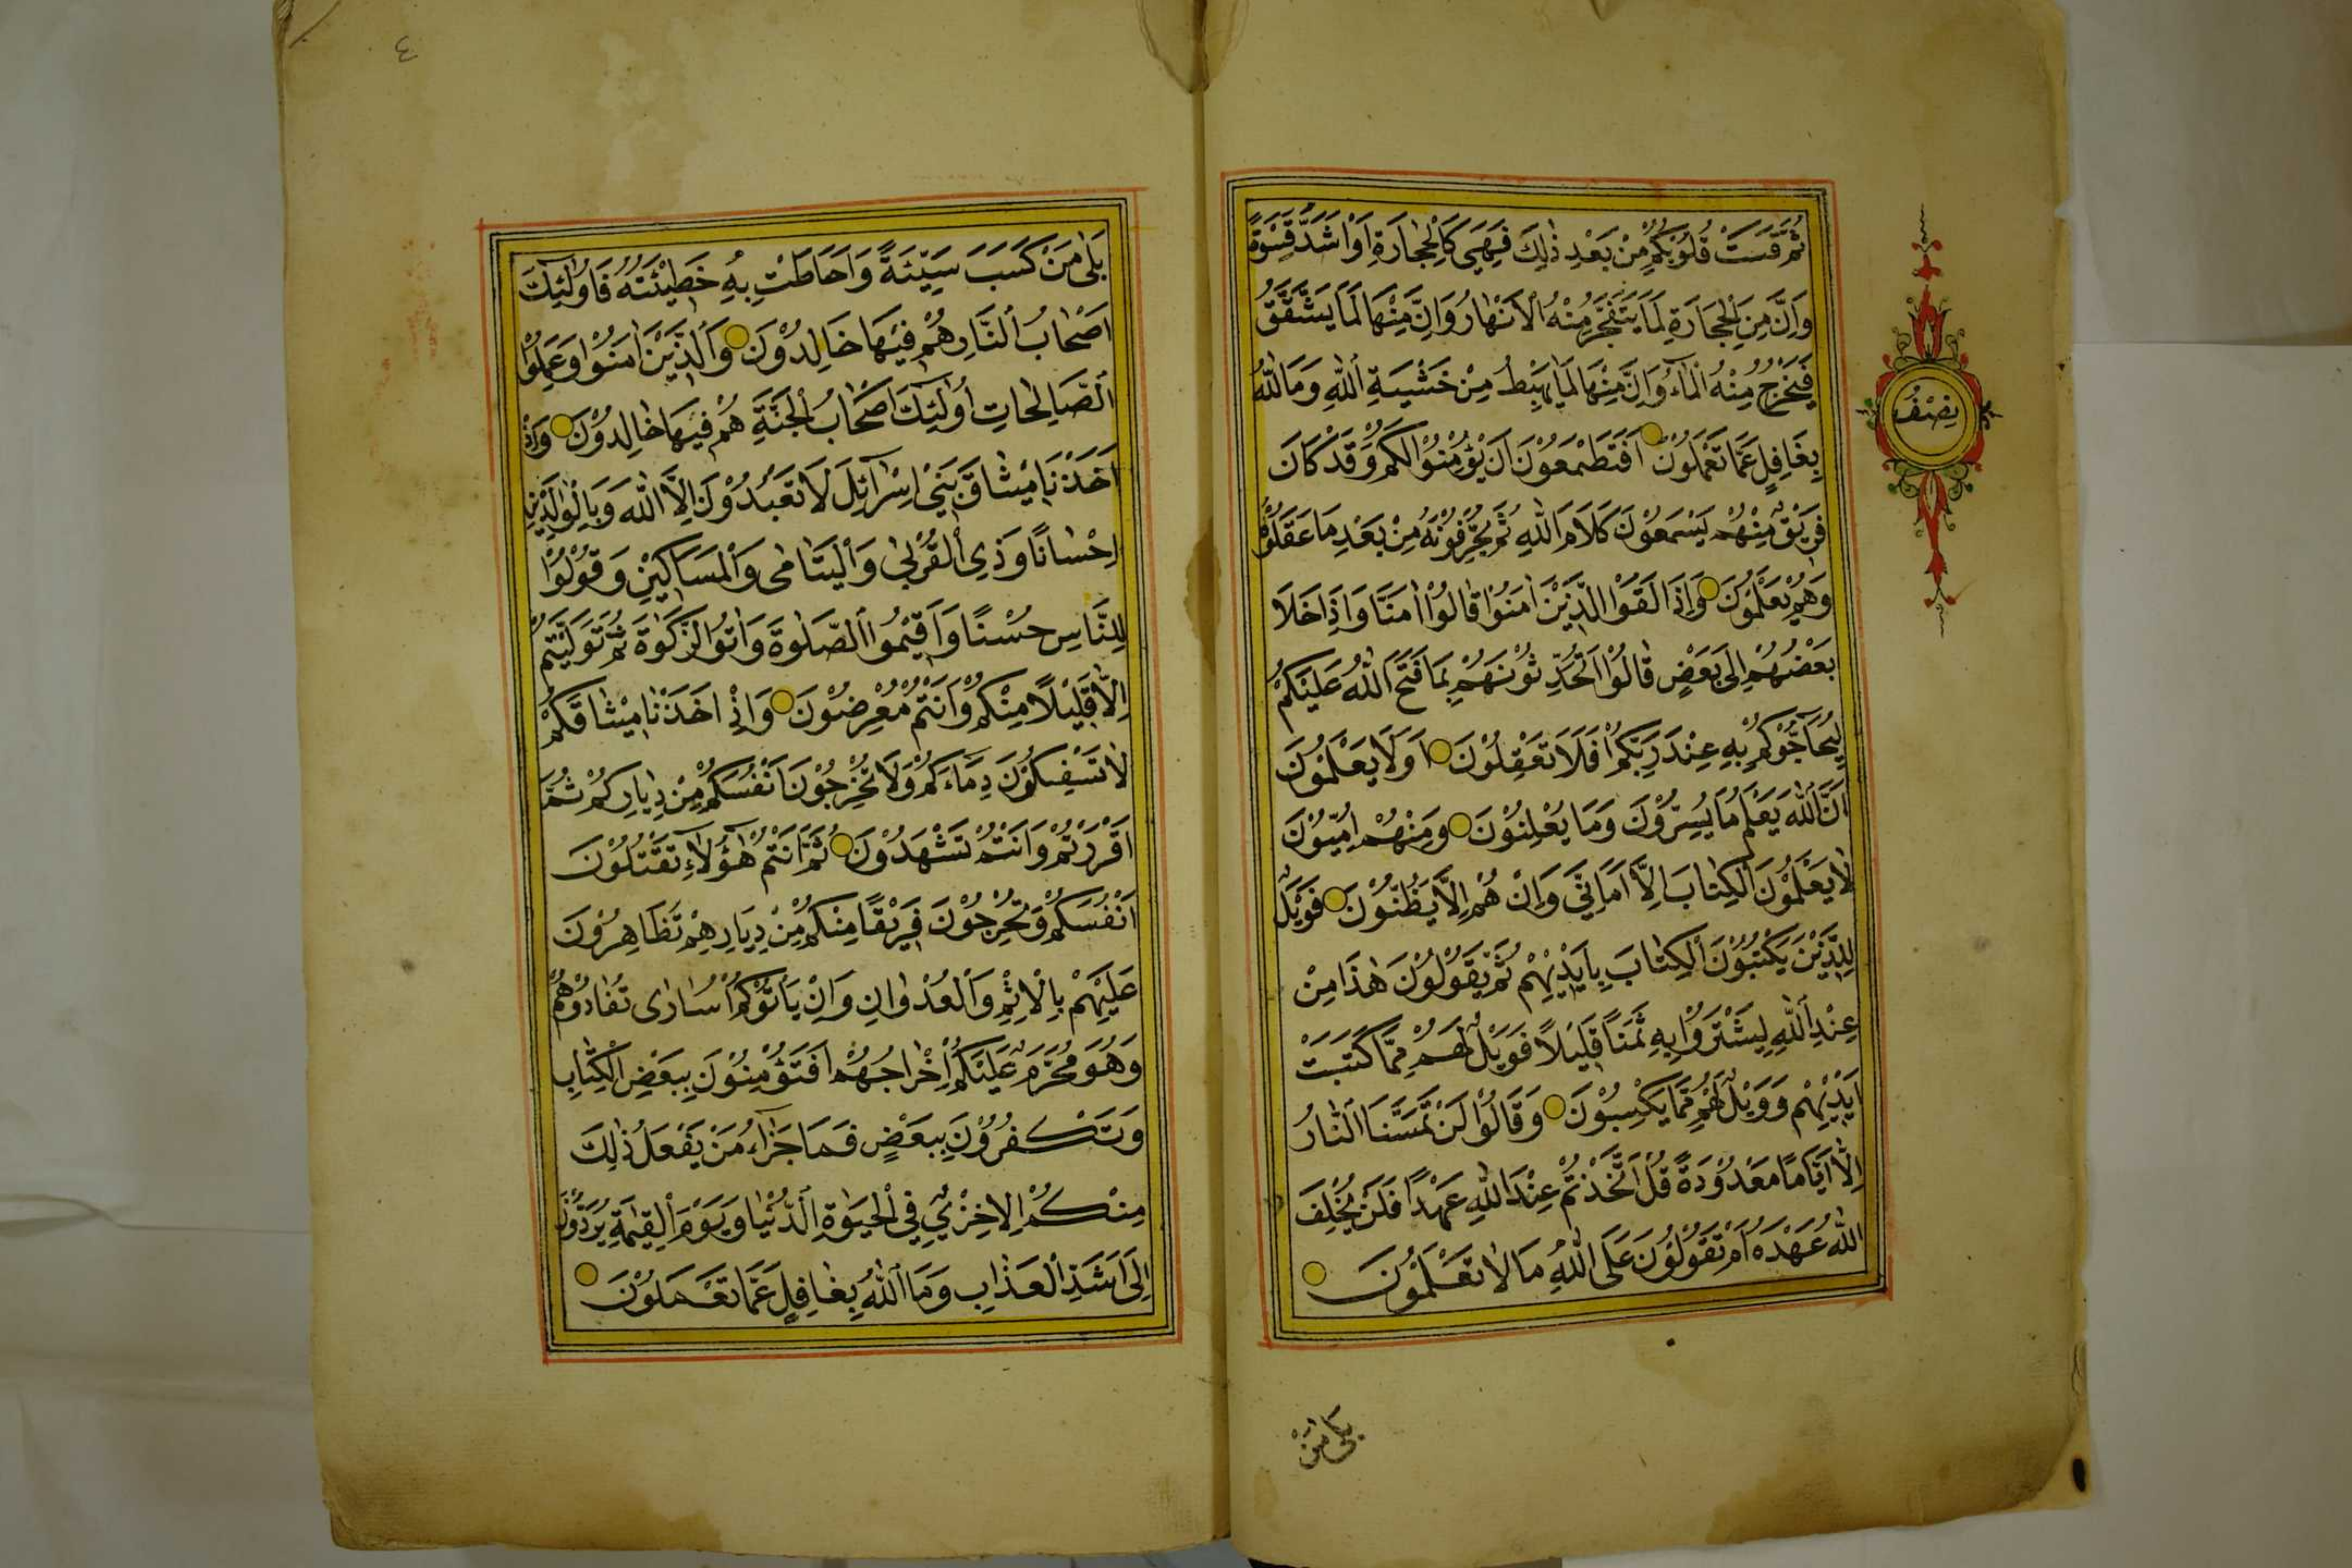 ثُمَّ قَسَتْ قُلُوبُكُمْ مِنْ بَعْدِ ذٰلِكَ فَهِيَ كَالْحِجَارَةِ اَوْ اَشَدُّ قَسْوَةً
وَاِنَّ مِنَ الْحِجَارَةِ لَمَا يَتَفَجَّرُ مِنْهُ الْاَنْهَارُ وَاِنَّ مِنْهَا لَمَا يَشَّقَّقُ
فَيَخْرُجُ مِنْهُ الْمَاءُ وَاِنَّ مِنْهَا لَمَا يَهْبِطُ مِنْ خَشْيَةِ اللّٰهِ وَمَا اللّٰهُ
بِغَافِلٍ عَمَّا تَعْمَلُونَ اَفَتَطْمَعُونَ اَنْ يُؤْمِنُوا لَكُمْ وَقَدْ كَانَ
فَرِيقٌ مِنْهُمْ يَسْمَعُونَ كَلَامَ اللّٰهِ ثُمَّ يُحَرِّفُونَهُ مِنْ بَعْدِ مَا عَقَلُوهُ
وَهُمْ يَعْلَمُونَ وَاِذَا لَقُوا الَّذِينَ اٰمَنُوا قَالُوا اٰمَنَّا وَاِذَا خَلَا
بَعْضُهُمْ اِلٰى بَعْضٍ قَالُوا اَتُحَدِّثُونَهُمْ بِمَا فَتَحَ اللّٰهُ عَلَيْكُمْ
لِيُحَاجُّوكُمْ بِهِ عِنْدَ رَبِّكُمْ اَفَلَا تَعْقِلُونَ اَوَلَا يَعْلَمُونَ
اَنَّ اللّٰهَ يَعْلَمُ مَا يُسِرُّونَ وَمَا يُعْلِنُونَ وَمِنْهُمْ اُمِّيُّونَ
لَا يَعْلَمُونَ الْكِتَابَ اِلَّا اَمَانِيَّ وَاِنْ هُمْ اِلَّا يَظُنُّونَ فَوَيْلٌ
لِلَّذِينَ يَكْتُبُونَ الْكِتَابَ بِاَيْدِيهِمْ ثُمَّ يَقُولُونَ هٰذَا مِنْ
عِنْدِ اللّٰهِ لِيَشْتَرُوا بِهِ ثَمَنًا قَلِيلًا فَوَيْلٌ لَهُمْ مِمَّا كَتَبَتْ
اَيْدِيهِمْ وَوَيْلٌ لَهُمْ مِمَّا يَكْسِبُونَ وَقَالُوا لَنْ تَمَسَّنَا النَّارُ
اِلَّا اَيَّامًا مَعْدُودَةً قُلْ اَتَّخَذْتُمْ عِنْدَ اللّٰهِ عَهْدًا فَلَنْ يُخْلِفَ
اللّٰهُ عَهْدَهُ اَمْ تَقُولُونَ عَلَى اللّٰهِ مَا لَا تَعْلَمُونَ
نِصْفُ
بَلٰى مَنْ
٤
بَلٰى مَنْ كَسَبَ سَيِّئَةً وَاَحَاطَتْ بِهِ خَطِيئَتُهُ فَاُولٰئِكَ
اَصْحَابُ النَّارِ هُمْ فِيهَا خَالِدُونَ وَالَّذِينَ اٰمَنُوا وَعَمِلُوا
الصَّالِحَاتِ اُولٰئِكَ اَصْحَابُ الْجَنَّةِ هُمْ فِيهَا خَالِدُونَ وَاِذْ
اَخَذْنَا مِيثَاقَ بَنِي اِسْرَائِلَ لَا تَعْبُدُونَ اِلَّا اللّٰهَ وَبِالْوَالِدَيْنِ
اِحْسَانًا وَذِي الْقُرْبٰى وَالْيَتَامٰى وَالْمَسَاكِينِ وَقُولُوا
لِلنَّاسِ حُسْنًا وَاَقِيمُوا الصَّلٰوةَ وَاٰتُوا الزَّكٰوةَ ثُمَّ تَوَلَّيْتُمْ
اِلَّا قَلِيلًا مِنْكُمْ وَاَنْتُمْ مُعْرِضُونَ وَاِذْ اَخَذْنَا مِيثَاقَكُمْ
لَا تَسْفِكُونَ دِمَاءَكُمْ وَلَا تُخْرِجُونَ اَنْفُسَكُمْ مِنْ دِيَارِكُمْ ثُمَّ
اَقْرَرْتُمْ وَاَنْتُمْ تَشْهَدُونَ ثُمَّ اَنْتُمْ هٰؤُلَاءِ تَقْتُلُونَ
اَنْفُسَكُمْ وَتُخْرِجُونَ فَرِيقًا مِنْكُمْ مِنْ دِيَارِهِمْ تَظَاهَرُونَ
عَلَيْهِمْ بِالْاِثْمِ وَالْعُدْوَانِ وَاِنْ يَأْتُوكُمْ اُسَارٰى تُفَادُوهُمْ
وَهُوَ مُحَرَّمٌ عَلَيْكُمْ اِخْرَاجُهُمْ اَفَتُؤْمِنُونَ بِبَعْضِ الْكِتَابِ
وَتَكْفُرُونَ بِبَعْضٍ فَمَا جَزَاءُ مَنْ يَفْعَلُ ذٰلِكَ
مِنْكُمْ اِلَّا خِزْيٌ فِي الْحَيٰوةِ الدُّنْيَا وَيَوْمَ الْقِيٰمَةِ يُرَدُّونَ
اِلٰى اَشَدِّ الْعَذَابِ وَمَا اللّٰهُ بِغَافِلٍ عَمَّا تَعْمَلُونَ